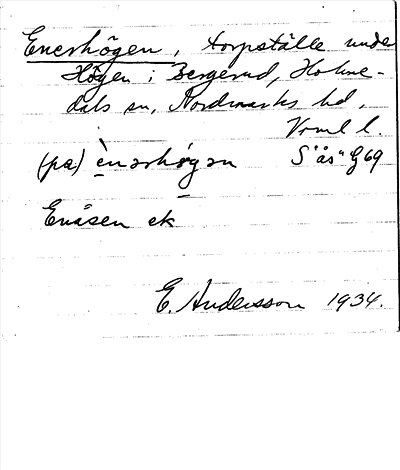 Enershögen, torpställe under
Högen i Bergerud, Holme-
dals sn, Nordmarks hd,
Vrml l.
(pa) ènərhøgən S"ås" G69
Enåsen ek
E. Andersson 1934.